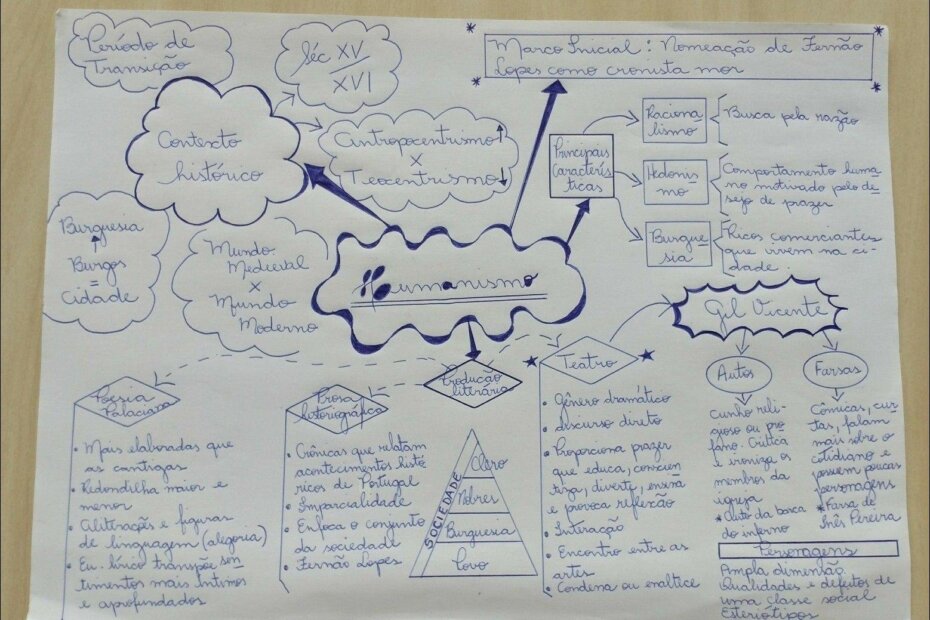 Período de
Transição
Séc XV
XVI
Marco Inicial: Nomeação de Fernão
Lopes como cronista mor
Contexto
histórico
Antropocentrismo
X
Teocentrismo
Principais
Caracterís
ticas
Raciona-
lismo
Busca pela razão
Hedonis-
mo
Comportamento huma-
no motivado pelo de-
sejo de prazer
Burgue-
sia
Ricos comerciantes
que vivem na ci-
dade.
Burguesia
Burgos
=
Cidade
Mundo
Medieval
X
Mundo
Moderno
Humanismo
Gil Vicente
Autos
Farsas
Produção
literária
Poesia
Palaciana
• Mais elaboradas que
as cantigas
• Redondilha maior e
menor
• Aliterações e figuras
de linguagem (alegoria)
• Eu-lírico transpõe sen
timentos mais íntimos
e aprofundados
Prosa
historiográfica
• Crônicas que relatam
acontecimentos histó
ricos de Portugal
• Imparcialidade
• Enfoca o conjunto
da sociedade
• Fernão Lopes
SOCIEDADE
Clero
Nobres
Burguesia
Povo
Teatro
• Gênero dramático
• discurso direto
• Proporciona prazer
que educa, conscien
tiza, diverte, ensina
e provoca reflexão
• Interação
• Encontro entre as
artes
• Condena ou enaltece
cunho reli-
gioso ou pro
fano. Critica
e ironiza os
membros da
igreja
* Auto da barca
do inferno
Cômicas, cur-
tas, falam
mais sobre o
cotidiano e
possuem poucas
personagens
* Farsa de
Inês Pereira
Personagens
Ampla dimensão.
Qualidades e defeitos de
uma classe social
Esteriótipos